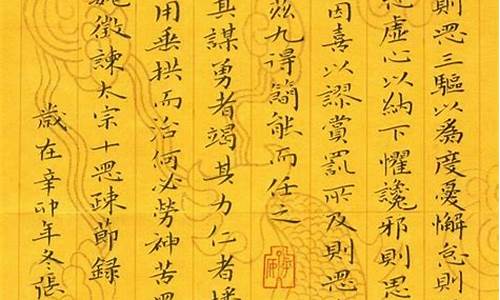 則思三驅以爲度憂懈怠則
虛心以納下懼讒邪則思
因喜以謬賞罰所及則思
茲九得簡能而任之
其謀勇者竭其力仁者播
用垂拱而治何必勞神苦思
魏徵諫太宗十思疏節録
歲在辛卯年冬張